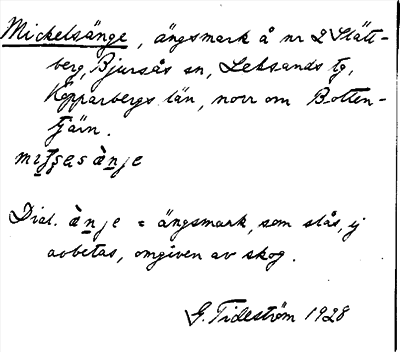 Mickelsänge, ängsmark å nr 2 Slätt-
berg, Bjursås sn, Leksands tg,
Kopparbergs län, norr om Botten-
tjärn.
Dial. ànje = ängsmark, som slås, ej
arbetas, omgiven av skog.
G. Tideström 1928